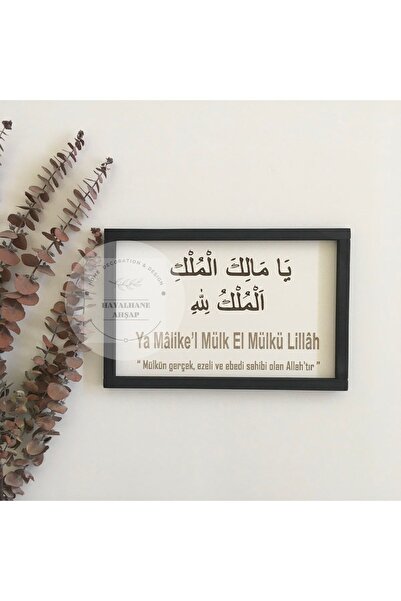 يَا مَالِكَ الْمُلْكِ
اَلْمُلْكُ لِلّٰهِ
Ya Mâlike'l Mülk El Mülkü Lillâh
“ Mülkün gerçek, ezeli ve ebedi sahibi olan Allah'tır ”
HOME DECORATION & DESIGN
HAYALHANE
AHŞAP